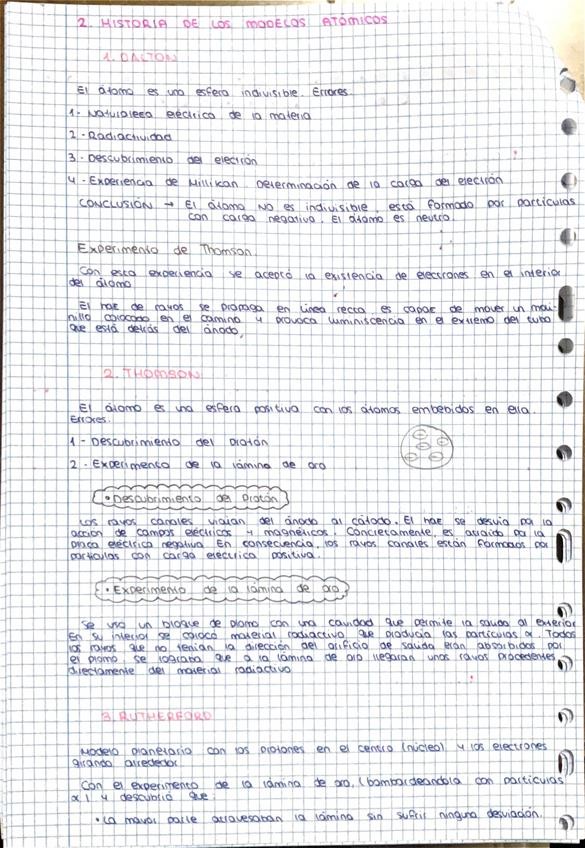 2. HISTORIA DE LOS MODELOS ATÓMICOS
1. DALTON
El átomo es una esfera indivisible. Errores.
1- Naturaleza eléctrica de la materia
2- Radiactividad
3- Descubrimiento del electrón
4- Experiencia de Millikan. Determinación de la carga del electrón
CONCLUSIÓN → El átomo NO es indivisible, está formado por partículas
con carga negativa. El átomo es neutro.
Experimento de Thomson.
Con esta experiencia se aceptó la existencia de electrones en el interior
del átomo
El haz de rayos se propaga en línea recta, es capaz de mover un moli-
nillo colocado en el camino y provoca luminiscencia en el extremo del tubo
que está detrás del ánodo.
2. THOMSON
El átomo es una esfera positiva con los átomos embebidos en ella.
Errores.
1- Descubrimiento del protón
2- Experimento de la lámina de oro
• Descubrimiento del Protón
Los rayos canales viajan del ánodo al cátodo. El haz se desvía por la
acción de campos eléctricos y magnéticos. Concretamente, es atraído por la
placa eléctrica negativa. En consecuencia, los rayos canales están formados por
partículas con carga eléctrica positiva.
• Experimento de la lámina de oro
Se usó un bloque de plomo con una cavidad que permite la salida al exterior
En su interior se colocó material radiactivo que producía las partículas α. Todos
los rayos que no tenían la dirección del orificio de salida eran absorbidos por
el plomo, se lograba que a la lámina de oro llegaran unos rayos procedentes
directamente del material radiactivo
3. RUTHERFORD
Modelo planetario con los protones en el centro (núcleo) y los electrones
girando alrededor
Con el experimento de la lámina de oro, (bombardeándola con partículas
α) y descubrió que:
• La mayor parte atravesaban la lámina sin sufrir ninguna desviación.